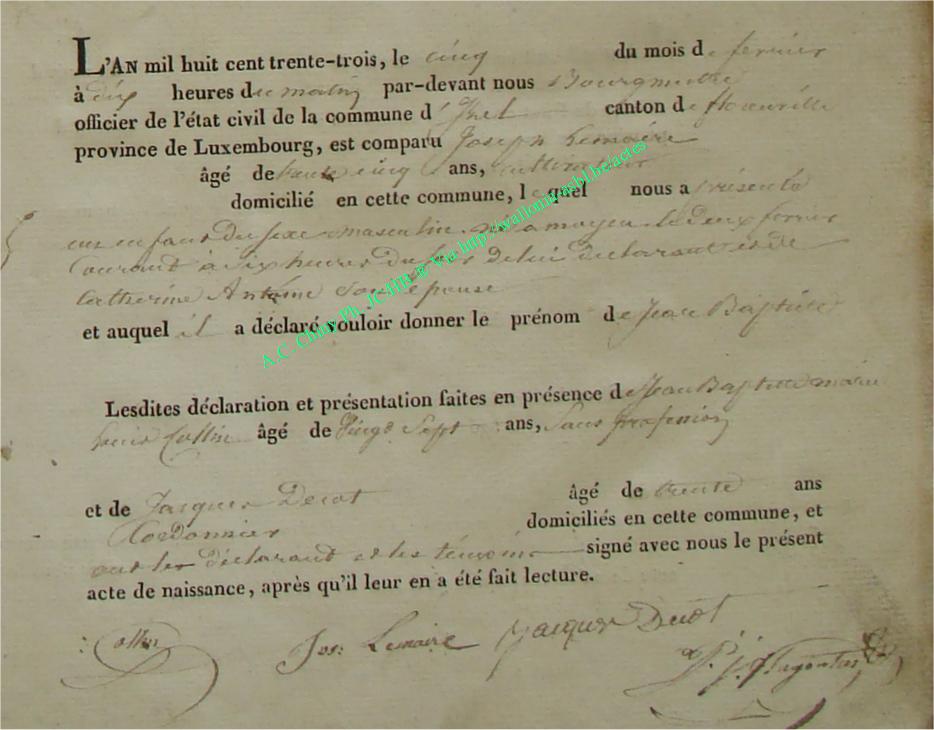 L'AN mil huit cent trente-trois, le cinq du mois de fevrier
à dix heures du matin par-devant nous Bourgmestre
officier de l'état civil de la commune d'Izel canton de florenville
province de Luxembourg, est comparu Joseph Lemaire
âgé de trente cinq ans, cultivateur
domicilié en cette commune, lequel nous a présenté
un enfant du sexe masculin, né a moyen le deux fevrier
Courant à Six heures du soir de lui déclarant et de
Catherine Antoine Son Epouse
et auquel il a déclaré vouloir donner le prénom de Jean Baptiste
Lesdites déclaration et présentation faites en présence de Jean Baptiste marie
Louis Collin âgé de Vingt Sept ans, Sans profession
et de Jacques Decot âgé de trente ans
Cordonnier domiciliés en cette commune, et
ont les déclarant et les témoins signé avec nous le présent
acte de naissance, après qu'il leur en a été fait lecture.
Collin Jos: Lemaire Jacques Decot
A.C. Chiny Ph. JC.HB ® Via http://wallonica.asbl.be/actes